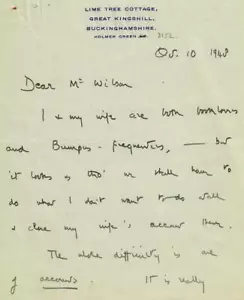 LIME TREE COTTAGE,
GREAT KINGSHILL,
BUCKINGHAMSHIRE.
HOLMER GREEN 3152.
Oct. 10 1948
Dear Mr Wilson
I & my wife are both booklovers
and Bumpus-frequenters, — but
it looks as tho' we shall have to
do what I don't want to do
& close my wife's account there.
The whole difficulty is one
of accounts. It is really